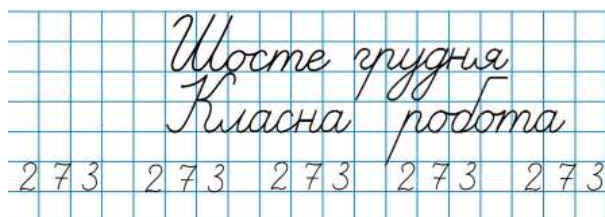 Шосте грудня
Класна робота
273 273 273 273 273